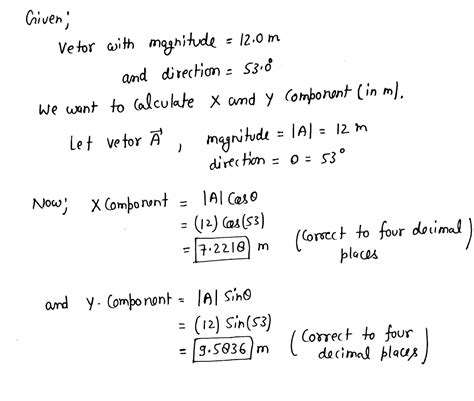 Given;
Vetor with magnitude = 12.0 m
and direction = 53.0°
We want to calculate X and Y Component (in m).
Let vetor A⃗, magnitude = |A| = 12 m
direction = θ = 53°
Now; X Component = |A| Cosθ
= (12) Cos(53)
= 7.2218 m (Correct to four decimal places
and Y-Component = |A| Sinθ
= (12) Sin(53)
= 9.5836 m (Correct to four decimal places)